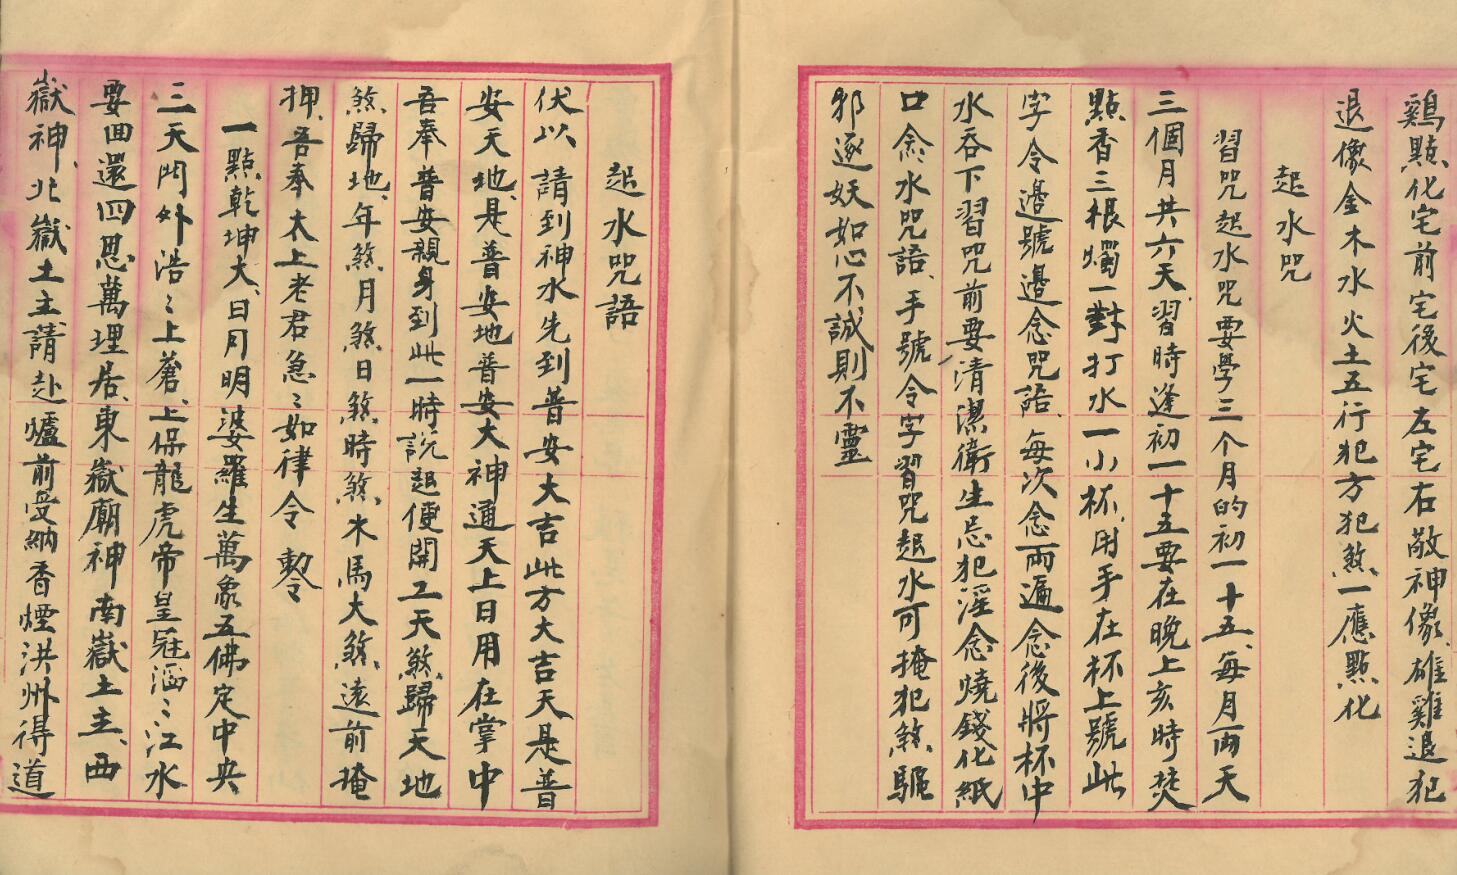 鷄點化宅前宅後宅左宅右敬神像、雄雞退犯
退像金木水火土五行犯方犯煞一應點化
起水咒
習咒起水咒要學三个月的初一十五、每月両天
三個月共六天、習時逢初一十五要在晚上亥時焚
點香三根燭一對打水一小杯、用手在杯上號此
字令邊號邊念咒語、每次念両遍念後將杯中
水吞下習咒前要清潔衛生忌犯淫念燒錢化紙
口念水咒語、手號令字習咒起水可掩犯煞、驅
邪逐妖如心不誠則不靈
起水咒語
伏以 請到神水先到普安大吉此方大吉天是普
安天地、是普安地普安大神通天上日用在掌中
吾奉普安親身到此一時說起便開工天煞、歸天地
煞歸地、年煞月煞日煞時煞、木馬大煞、遠前掩
押、吾奉太上老君急〻如律令 勅令
一點乾坤大、日月明婆羅生萬象五佛定中央
三天門外浩〻上蒼、上保龍虎帝皇冠涵〻江水
要回還四恩萬埋居、東嶽廟神南嶽土主、西
嶽神、北嶽土主、請赴爐前受納香煙洪州得道